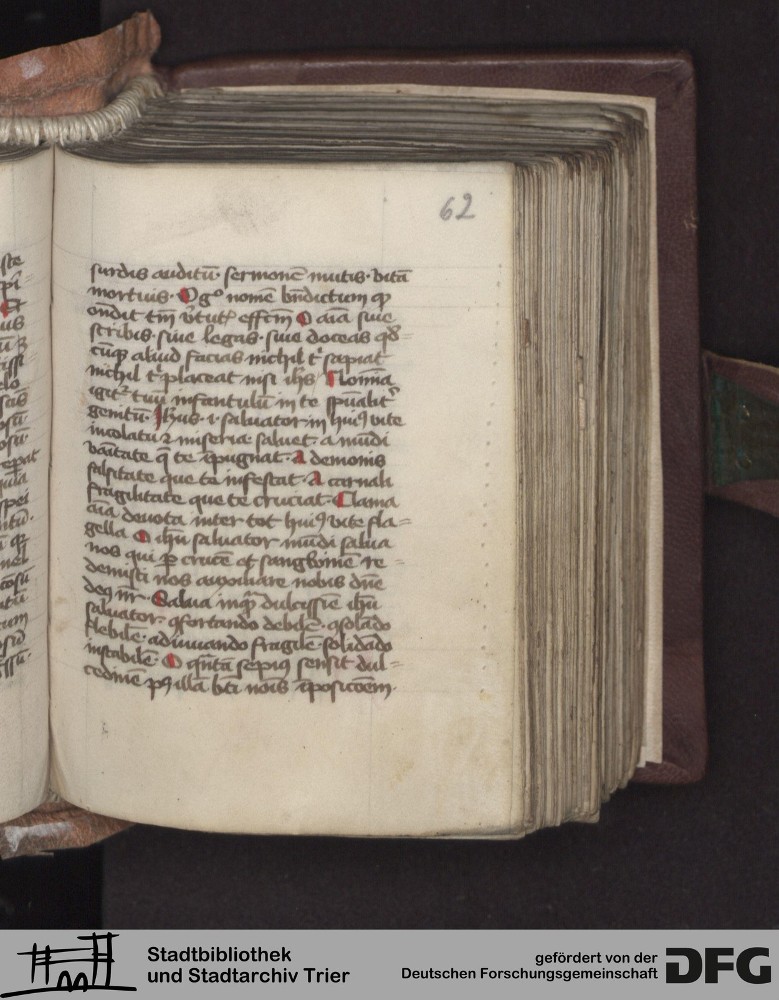 62
surdis auditū· sermonē mutis· vitā
mortuis· Ogo nomē bn̄dictum qp
ondit tm̄ v̓tut effcm̄ O aīa siue
scribis· siue legas· siue doceas qd=
cūqꝫ aliud facias nichil t sapiat
nichil t placeat nisi ihs
igit tuū infantulū in te spūalit
genitū· Ihus· i· saluator in huiꝰ vite
incolatu ⁊ miseria saluet· a mūdi
vanitate q̄ te īpugnat· A demonis
falsitate que te infestat· A carnali
fragilitate que te cruciat· Clama
aīa deuota inter tot huiꝰ vite fla=
gella O ihū saluator mūdi salua
nos qui ꝑ crucē et sanguinē re=
demisti nos auxiliare nobis dn̄e
deꝰ nr̄· Salua inqm̄ dulcissīe ihū
saluator· ꝯfortando debilē· ꝯsolādo
flebilē· adiuuando fragilē· solidādo
instabilē· O qn̄tā sepiꝰ sensit dul=
cedinē pꝰ illā bti nōis īposicōem·
Stadtbibliothek
und Stadtarchiv Trier
gefördert von der
Deutschen Forschungsgemeinschaft
DFG